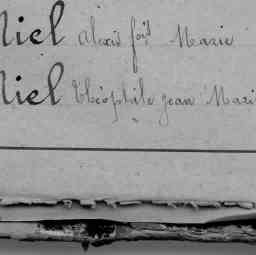 Niel Alexis fois Marie
Niel Théophile Jean Mari